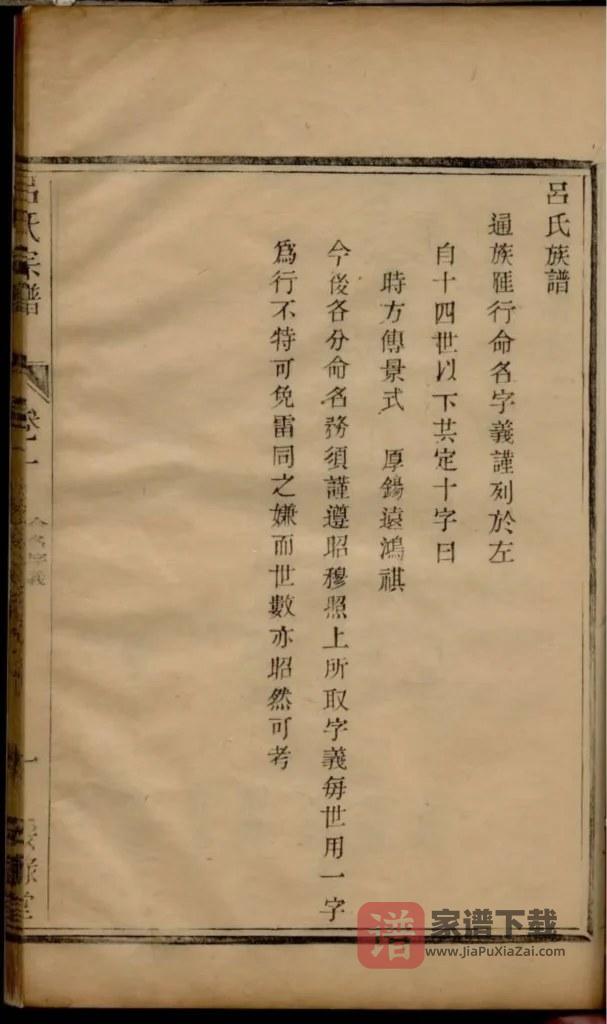 呂氏族譜
通族匯行命名字義謹列於左
自十四世以下共定十字曰
時方傳景式　厚錫遠鴻祺
今後各分命名務須謹遵昭穆照上所取字義毎世用一字
爲行不特可免雷同之嫌而世數亦昭然可考
呂氏宗譜
卷一
命名字義
一
譜
家谱下载
www.JiaPuXiaZai.com